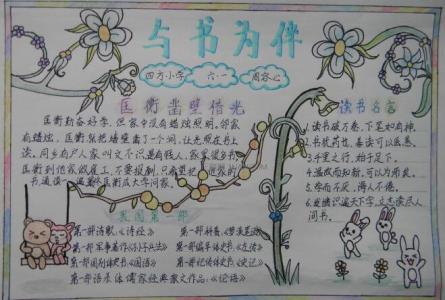 与书为伴
四方小学 六·一 周容心
匡衡凿壁借光
匡衡勤奋好学,但家中没有蜡烛照明。邻家
有蜡烛,匡衡就把墙壁凿了一个洞,让光照在书上
读。同乡有户人家叫文不识,是有钱人,家里很多书。
匡衡到他家做雇工,不要报酬,只希望把他家的
书通读一遍。匡衡成大学问家。
读书名言
1.读书破万卷,下笔如有神。
2.书犹药也,善读可以医愚。
3.千里之行,始于足下。
4.温故而知新,可以为师矣。
5.学而不厌,诲人不倦。
6.发愤识遍天下字,立志读尽人
间书。
我国第一部
第一部诗歌《诗经》
第一部军事著作《孙子兵法》
第一部国别体史书《国语》
第一部语录体儒家经典散文作品:《论语》
第一部词典:《尔雅》
第一部编年体史书《左传》
第一部纪传体史书《史记》